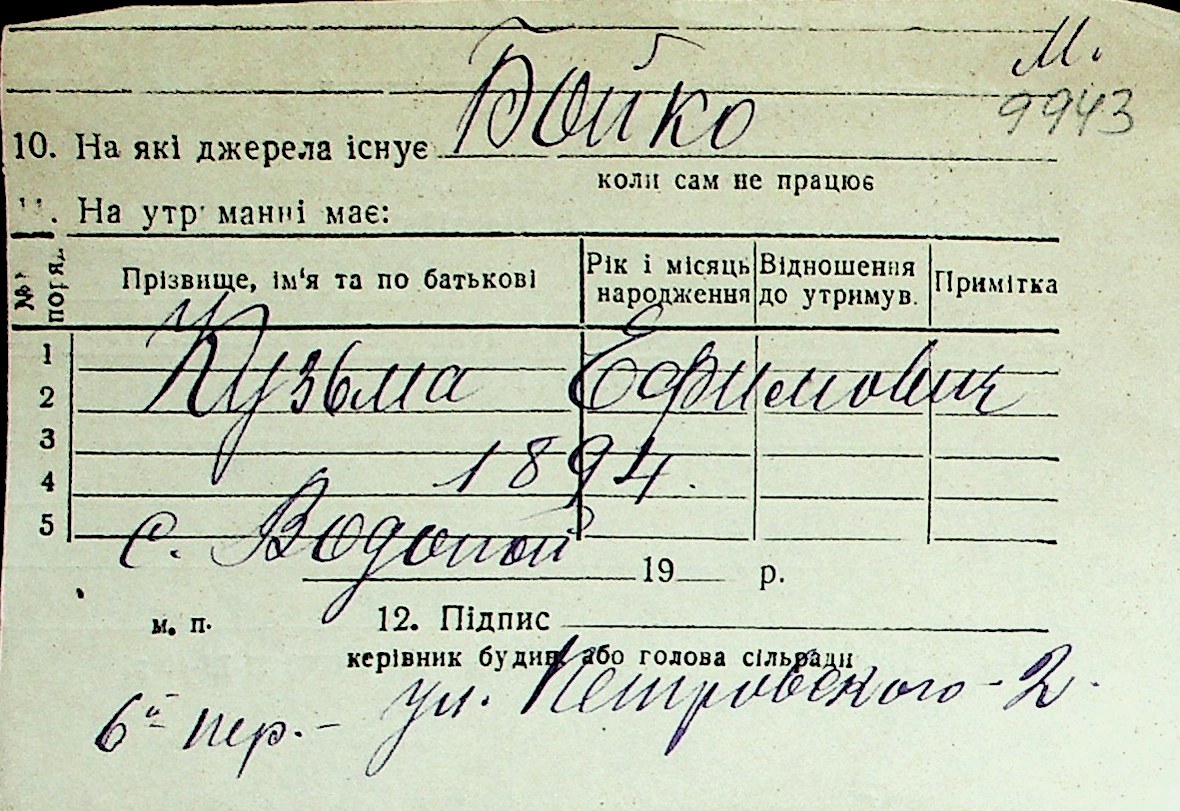 М.
Бойко
9943
10. На які джерела існує
коли сам не працює
11. На утр манні має:
№№ поряд. Прізвище, ім'я та по батькові Рік і місяць народження Відношення до утримув. Примітка
1
Кузьма Ефимович
2
3
1894.
4
5
с. Водопой
19 р.
м. п. 12. Підпис
керівник будин. або голова сільради
6й пер. - ул. Петровского - 2.